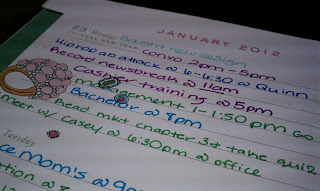 JANUARY 2012
23 Monday Bought new design
convo 2pm - 5pm
Hip hop ab attack @ 6-6:30 @ Quinn
Record newsbreak @ 11am
cashier training @ 5pm
Bachelor @ 8pm
management 1-1:50pm
Read mkt chapter 3 + take quiz
Meet w/ Casey @ 6:30pm @ office
Tuesday
mom's @